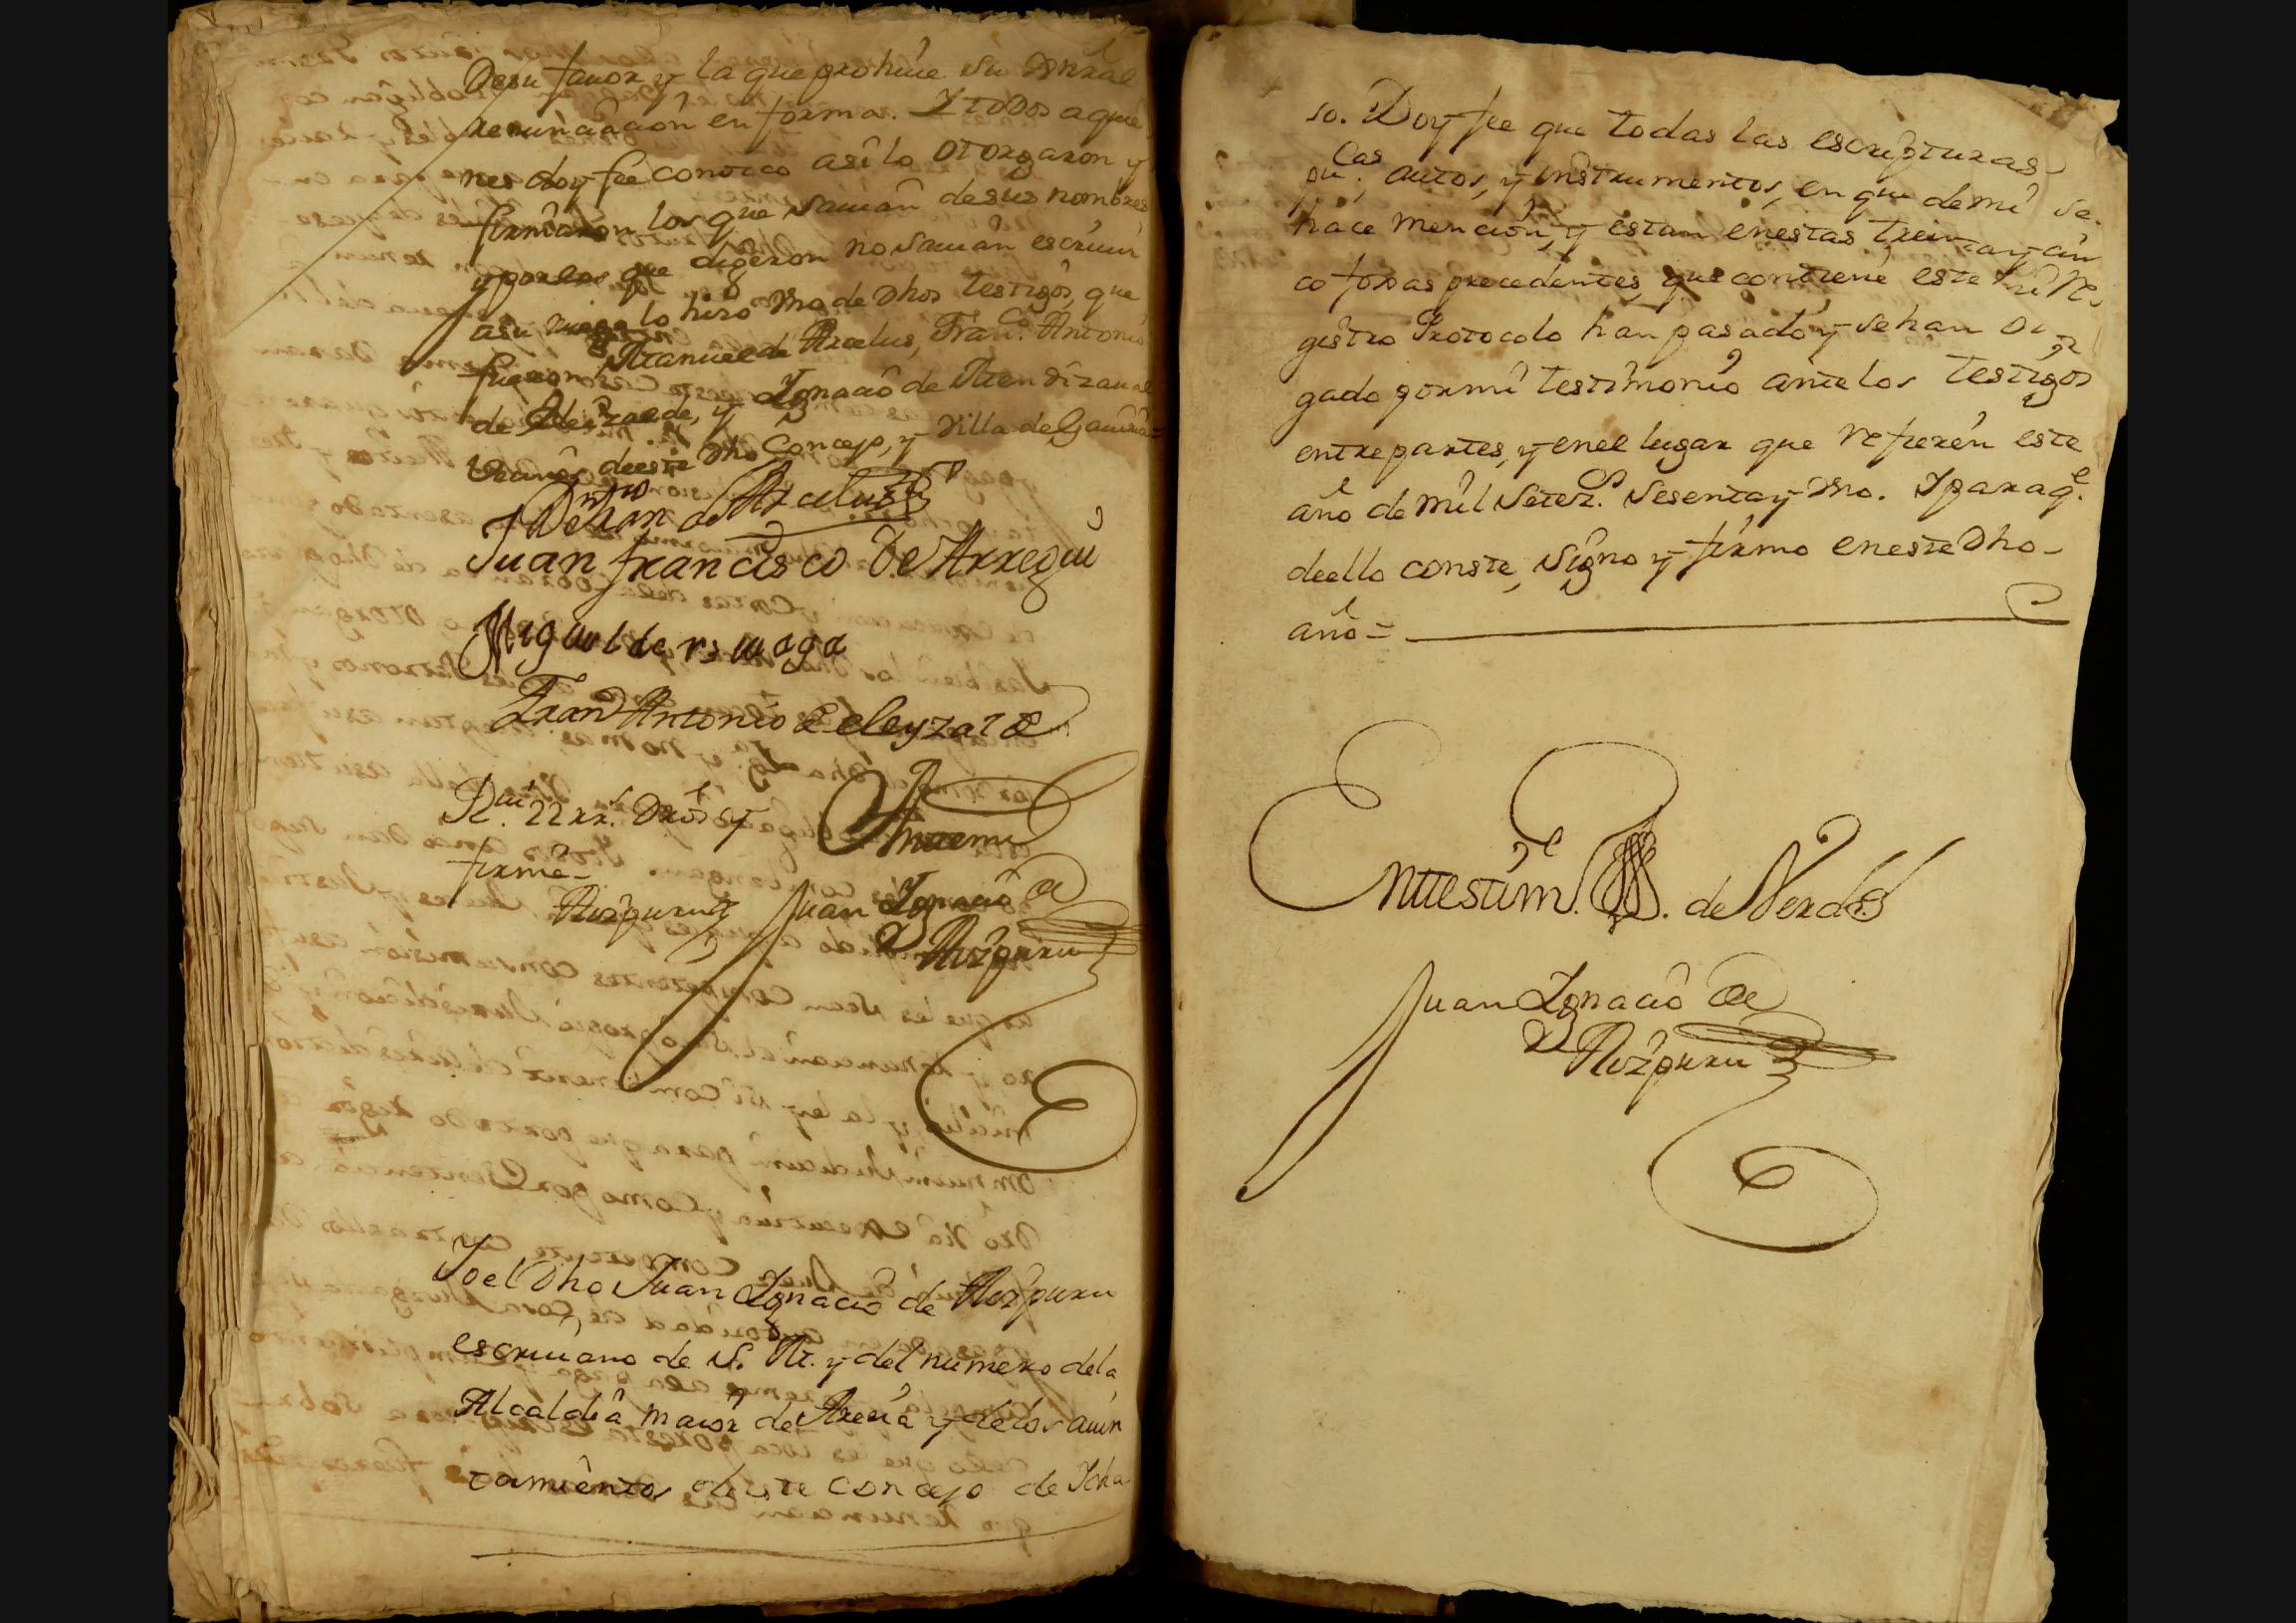 Desu favor y la que prohive su Genral
renunciacion en forma. Y todos aquie
nes doy fee conozco asi lo otorgaron y
firmaron los que savian desus nombres
y por los que digeron no savian escrivir
asu ruego lo hizo Uno de Dhos testigos, que
fueron Manuel de Arcelus, Fran.co Antonio
de Eleizalde, y Ignacio de Mendizaval
Vecinos deeste Dho Concejo, y Villa de Gaviria=
de Arcelus
Juan francisco De Arregui
Miguel de
Fran.co Antonio de eleyzalde
R.vi 22 rr.s Dros y
firme-
Aizpuru
Antemi
Juan Ignacio de
Aizpuru
Yo el Dho Juan Ignacio de Aizpuru
escrivano de S. M. y del numero dela
Alcaldia maior de Areria y delos aiun
tamientos deeste Concejo de Icha
so. Doy fee que todas las escripturas
pu.cas autos, y instrumentos, en que demi se
hace mencion, y estan enestas treinta y cin
co foxas precedentes, que contiene este mi Re
gistro Protocolo han pasado y sehan otor
gado por mi testimonio ante los testigos
entre partes, y enel lugar que refieren este
año de mil Setez.s Sesenta y Uno. Y para q.e
deello conste, Signo y firmo eneste Dho
año=
En testim.o de Verdad
Juan Ignacio de
Aizpuru